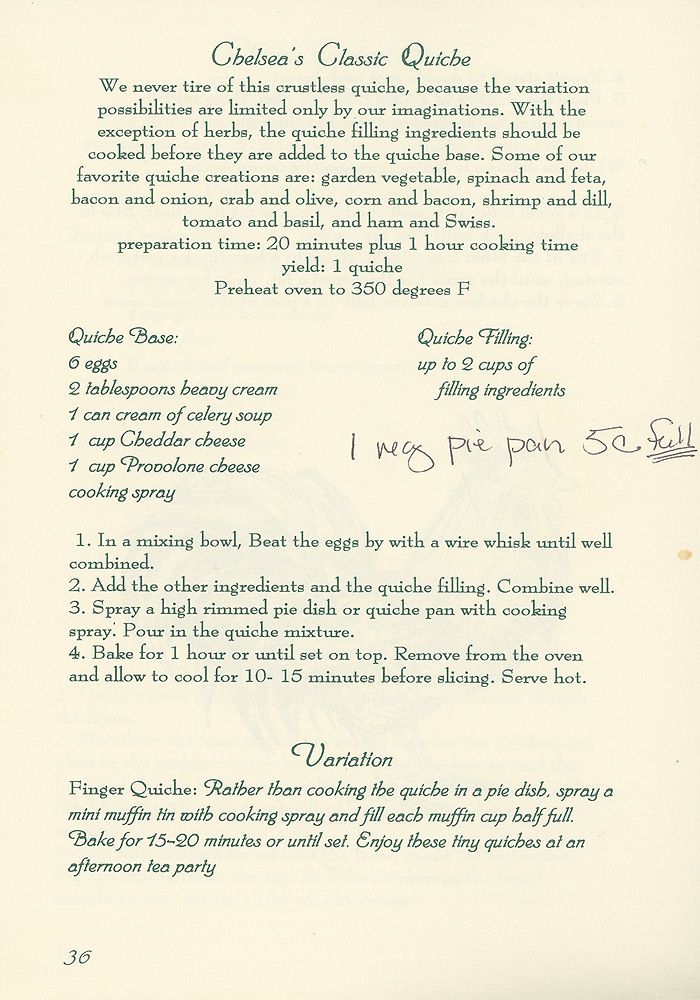 Chelsea's Classic Quiche
We never tire of this crustless quiche, because the variation
possibilities are limited only by our imaginations. With the
exception of herbs, the quiche filling ingredients should be
cooked before they are added to the quiche base. Some of our
favorite quiche creations are: garden vegetable, spinach and feta,
bacon and onion, crab and olive, corn and bacon, shrimp and dill,
tomato and basil, and ham and Swiss.
preparation time: 20 minutes plus 1 hour cooking time
yield: 1 quiche
Preheat oven to 350 degrees F
Quiche Base:
6 eggs
2 tablespoons heavy cream
1 can cream of celery soup
1 cup Cheddar cheese
1 cup Provolone cheese
cooking spray
Quiche Filling:
up to 2 cups of
filling ingredients
1 reg pie pan 5c full
1. In a mixing bowl, Beat the eggs by with a wire whisk until well
combined.
2. Add the other ingredients and the quiche filling. Combine well.
3. Spray a high rimmed pie dish or quiche pan with cooking
spray. Pour in the quiche mixture.
4. Bake for 1 hour or until set on top. Remove from the oven
and allow to cool for 10- 15 minutes before slicing. Serve hot.
Variation
Finger Quiche: Rather than cooking the quiche in a pie dish, spray a
mini muffin tin with cooking spray and fill each muffin cup half full.
Bake for 15-20 minutes or until set. Enjoy these tiny quiches at an
afternoon tea party
36